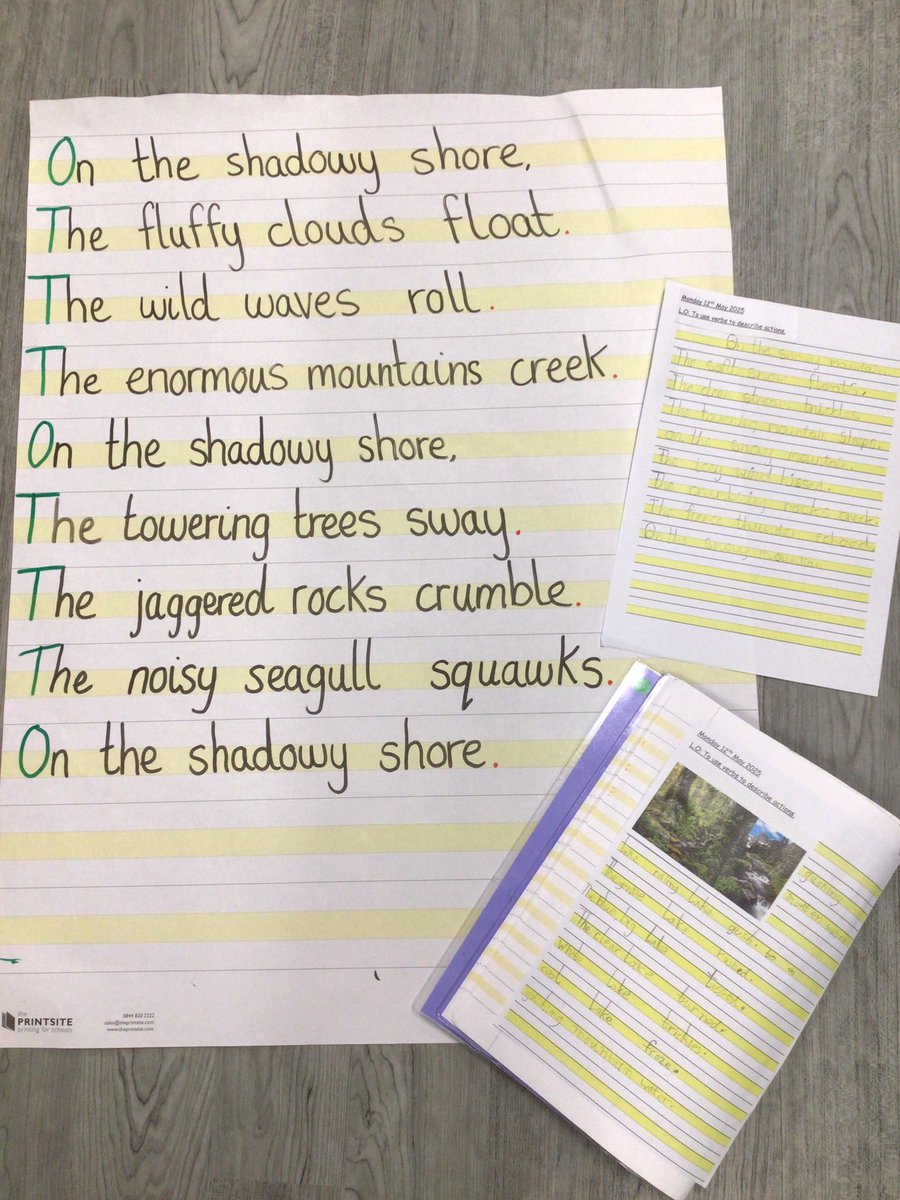 On the shadowy shore,
The fluffy clouds float.
The wild waves roll.
The enormous mountains creek.
On the shadowy shore,
The towering trees sway.
The jaggered rocks crumble.
The noisy seagull squawks.
On the shadowy shore.
the
PRINTSITE
printing for schools
0844 820 2222
sales@theprintsite.com
www.theprintsite.com
Monday 12th May 2025
L.O: To use verbs to describe actions.
On the snowy mountain
The soft snow floats.
The trickles
The towering mountain
on the snowy mountain.
The wind hissed.
The crumbling rocks
The thunder echoed.
On the snowy mountain
Monday 12th May 2025
L.O: To use verbs to describe actions.
gushing
lake gush.
lake
The blue big lake
The clear lake turned.
white lake trickles.
cool lake froze.
mountain water.